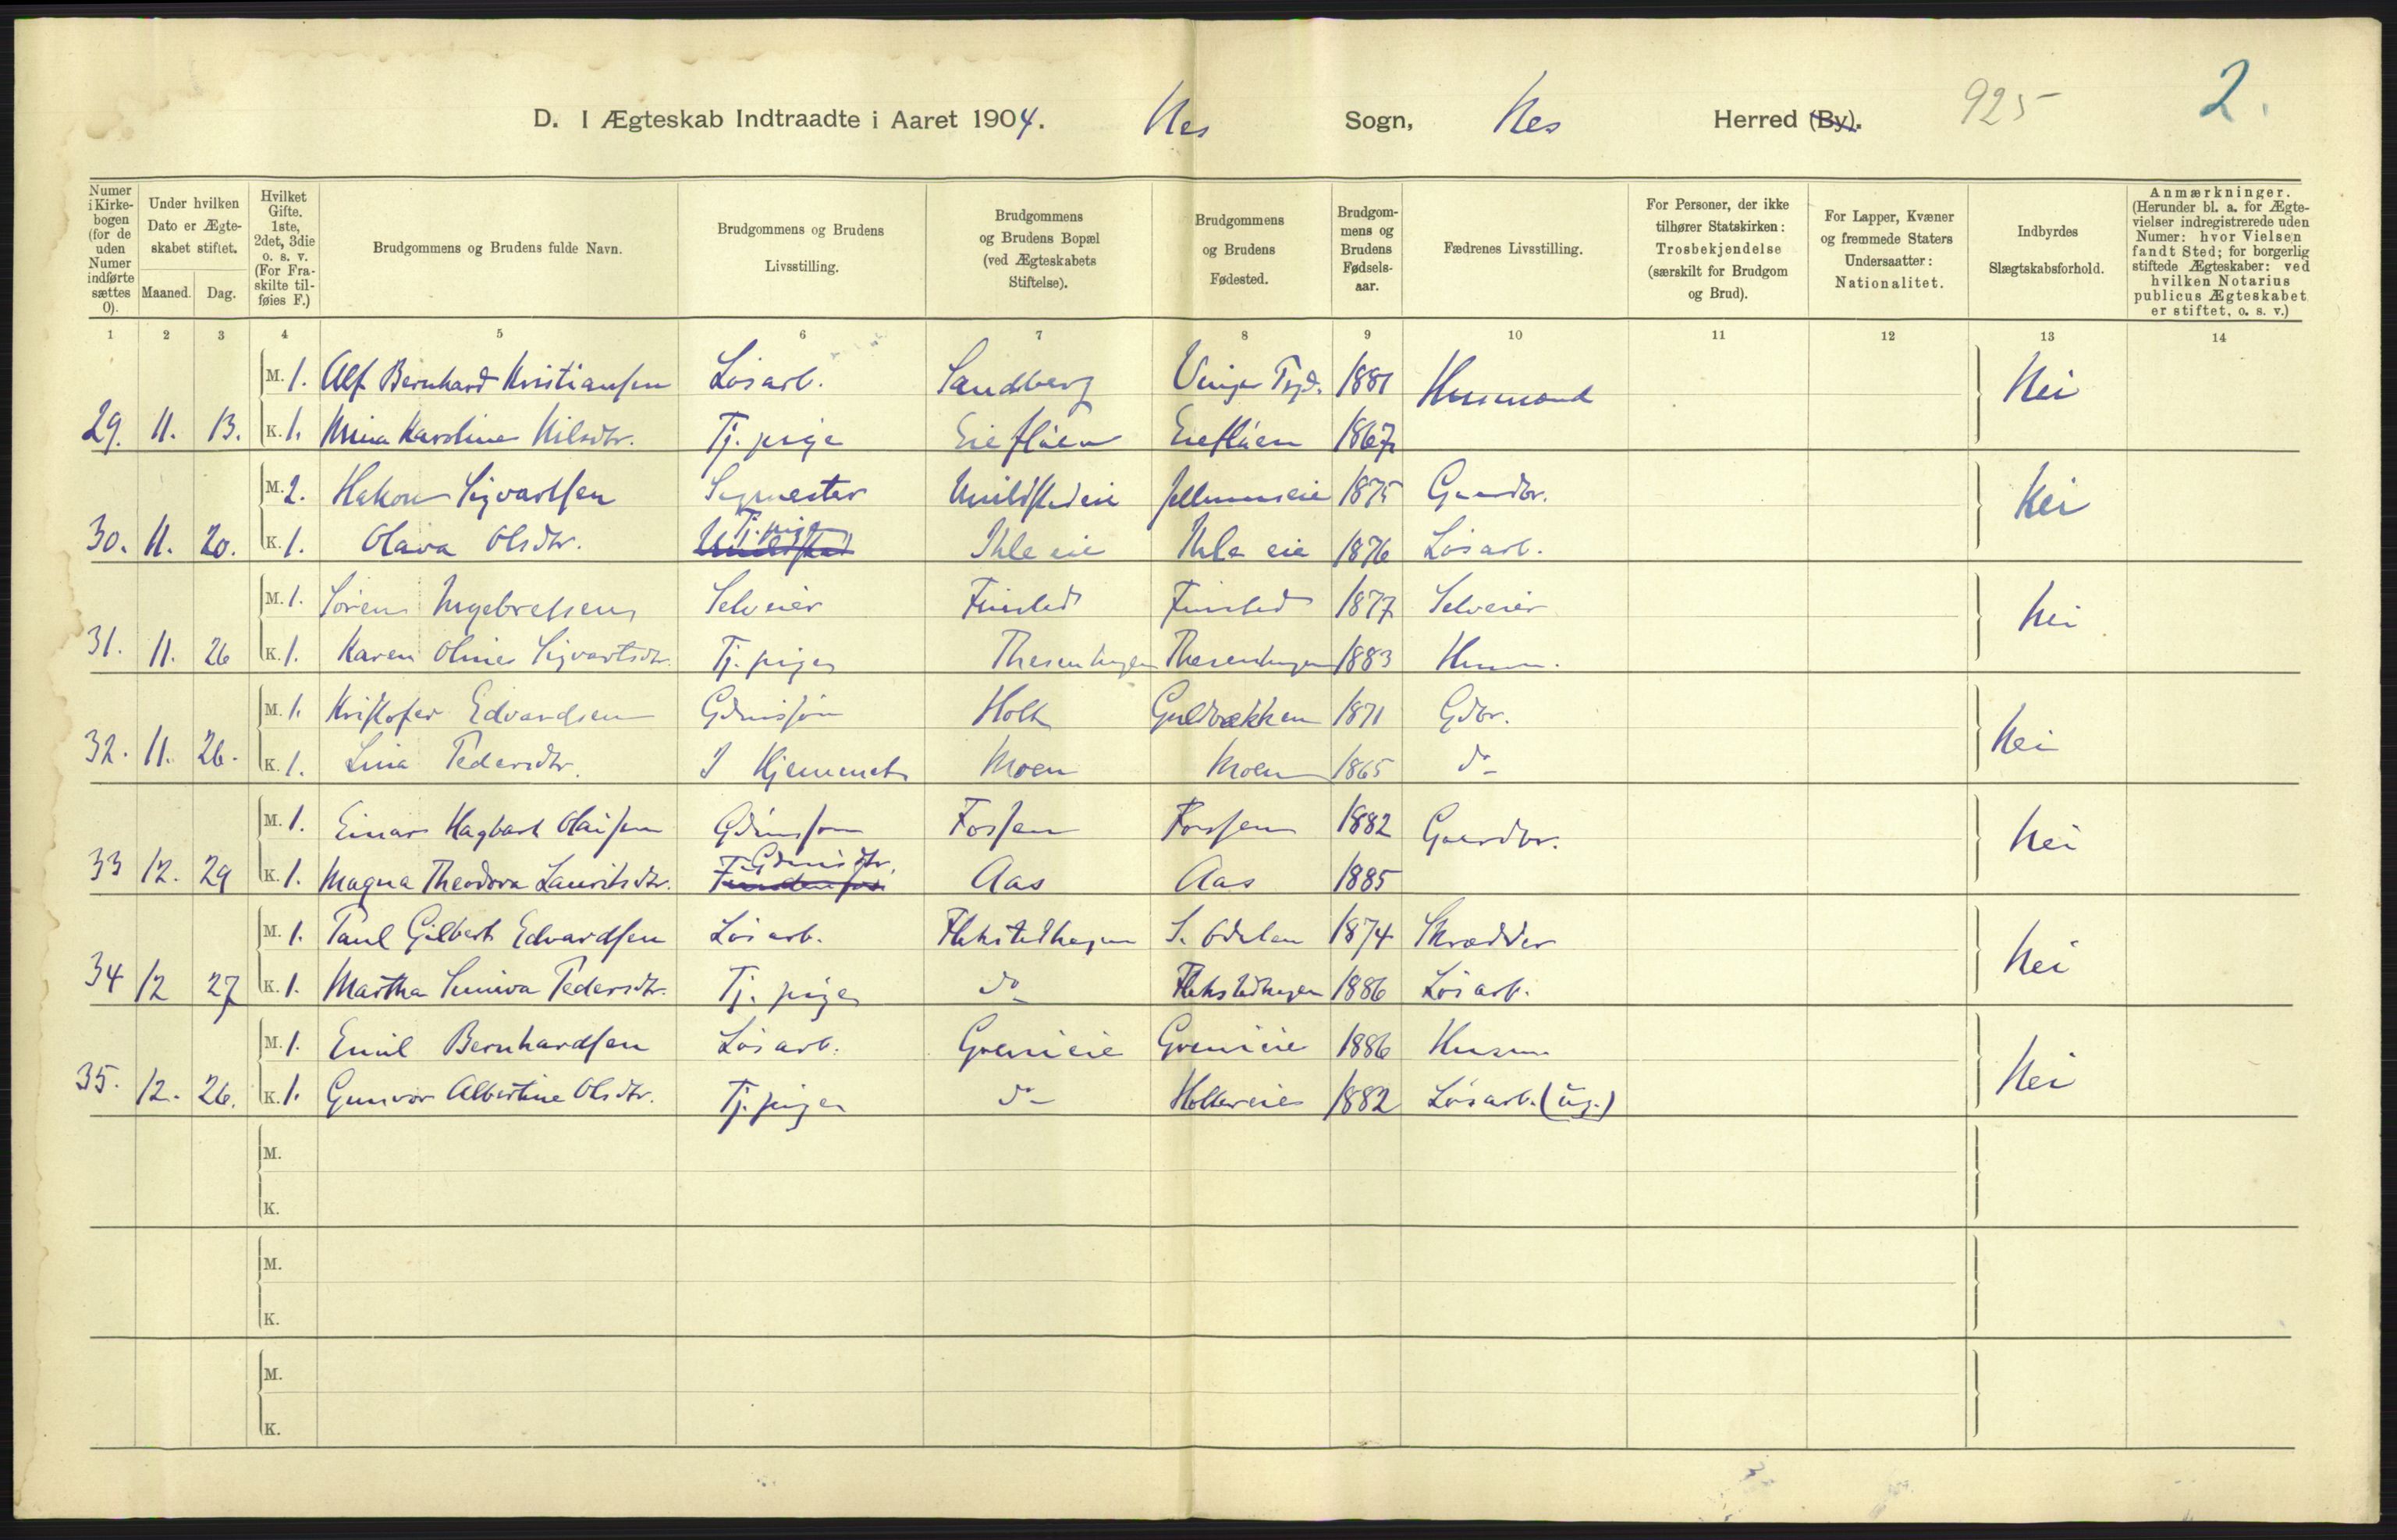 D. I Ægteskab Indtraadte i Aaret 1904. Nes Sogn, Nes Herred (By). 925 2.
Numer i Kirkebogen (for de uden Numer indførte sættes 0).
Under hvilken Dato er Ægteskabet stiftet.
Maaned. Dag.
Hvilket Gifte. 1ste, 2det, 3die o. s. v. (For Fraskilte tilføies F.)
Brudgommens og Brudens fulde Navn.
Brudgommens og Brudens Livsstilling.
Brudgommens og Brudens Bopæl (ved Ægteskabets Stiftelse).
Brudgommens og Brudens Fødested.
Brudgommens og Brudens Fødselsaar.
Fædrenes Livsstilling.
For Personer, der ikke tilhører Statskirken: Trosbekjendelse (særskilt for Brudgom og Brud).
For Lapper, Kvæner og fremmede Staters Undersaatter: Nationalitet.
Indbyrdes Slægtskabsforhold.
Anmærkninger. (Herunder bl. a. for Ægtevielser indregistrerede uden Numer: hvor Vielsen fandt Sted; for borgerlig stiftede Ægteskaber: ved hvilken Notarius publicus Ægteskabet er stiftet, o. s. v.)
1 2 3 4 5 6 7 8 9 10 11 12 13 14
M. 1. Alf Bernhard Kristiansen Løsarb. Sandberg Vinger 1881 Husmand Nei
29. 11. 13. K. 1. Mina Karoline Nilsdtr. Tj. pige Eieflåen Eieflåen 1867
M. 2. Hakon Sigvartsen Sagmester 1875 Gaardbr. Nei
30. 11. 20. K. 1. Olava Olsdtr. Tj. pige Ihle eie Ihle eie 1876 Løsarb.
M. 1. Søren Ingebretsen Selveier Finstad Finstad 1877 Selveier Nei
31. 11. 26 K. 1. Karen Oline Sigvartsdtr. Tj. pige Thesenhagen Thesenhagen 1883 Husm.
M. 1. Kristofer Edvardsen Gdmssøn Holt Guldbækken 1871 Gdbr. Nei
32. 11. 26. K. 1. Lina Pedersdtr. I Hjemmet Moen Moen 1865 do
M. 1. Einar Hagbart Olaisen Gdmssøn Fossen Fossen 1882 Gaardbr. Nei
33 12. 29 K. 1. Magna Theodora Lauritsdtr. Gdmsdtr. Aas Aas 1885
M. 1. Paul Gilbert Edvardsen Løsarb. Flakstadhagen S. Odalen 1874 Skrædder Nei
34 12 27 K. 1. Martha Suniva Pedersdtr. Tj. pige do Flakstadhagen 1886 Løsarb.
M. 1. Emil Bernhardsen Løsarb. Grenieie Grenieie 1886 Husm. Nei
35. 12. 26. K. 1. Gunvor Albertine Olsdtr. Tj. pige do Holtereie 1882 Løsarb. (ug.)
M.
K.
M.
K.
M.
K.